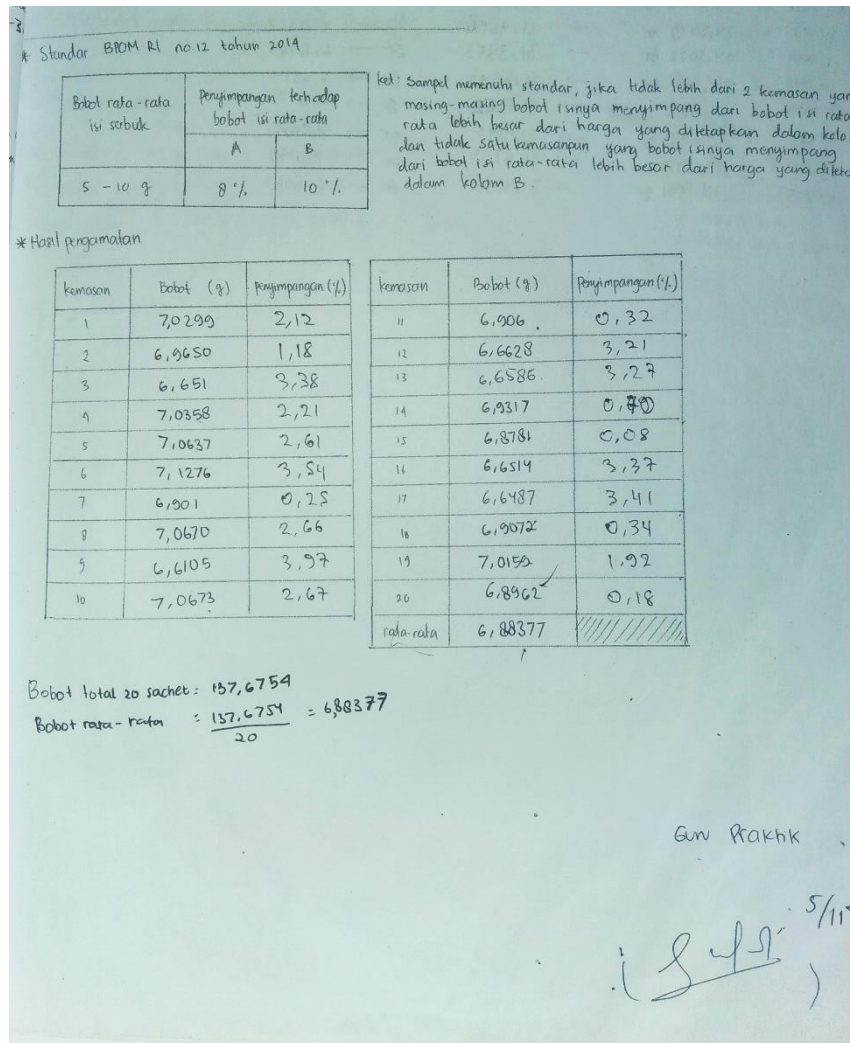 * Standar BPOM RI no.12 tahun 2014
Bobot rata-rata isi serbuk
Penyimpangan terhadap bobot isi rata-rata
A B
5 - 10 g 8 % 10 %
ket: Sampel memenuhi standar, jika tidak lebih dari 2 kemasan yan
masing-masing bobot isinya menyimpang dari bobot isi rata
rata lebih besar dari harga yang ditetapkan dalam kolo
dan tidak satu kemasanpun yang bobot isinya menyimpang
dari bobot isi rata-rata lebih besar dari harga yang diteta
dalam kolom B.
* Hasil pengamatan
kemasan Bobot (g) Penyimpangan (%)
1 7,0299 2,12
2 6,9650 1,18
3 6,651 3,38
4 7,0358 2,21
5 7,0637 2,61
6 7,1276 3,54
7 6,901 0,25
8 7,0670 2,66
9 6,6105 3,97
10 7,0673 2,67
kemasan Bobot (g) Penyimpangan (%)
11 6,906 0,32
12 6,6628 3,21
13 6,6586 3,27
14 6,9317 0,70
15 6,8781 0,08
16 6,6514 3,37
17 6,6487 3,41
18 6,9072 0,34
19 7,0159 1.92
20 6,8962 0,18
rata-rata 6,88377
Bobot total 20 sachet : 137,6754
Bobot rata-rata : 137,6754 = 6,88377
20
5/11